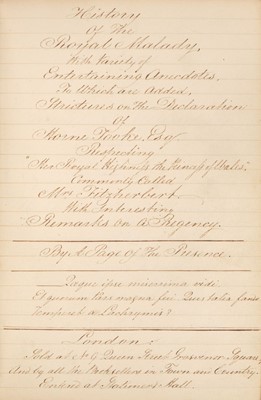 History
of The
Royal Malady,
With Variety of
Entertaining Anecdotes,
To Which are Added,
Strictures on The Declaration
of
Horne Tooke, Esq
Respecting
"Her Royal Highness the Princess of Wales",
Commonly Called
Mrs Fitzherbert
With Interesting
Remarks on a Regency.
By A Page of The Presence.
Quaque ipse miserrima vidi.
Et quorum pars magna fui. Quis talia fando
Temperet a Lachrymis?
London:
Sold at No 9 Queen Street Grosvenor Square,
And by all the Booksellers in Town and Country.
Enter'd at Stationers Hall.